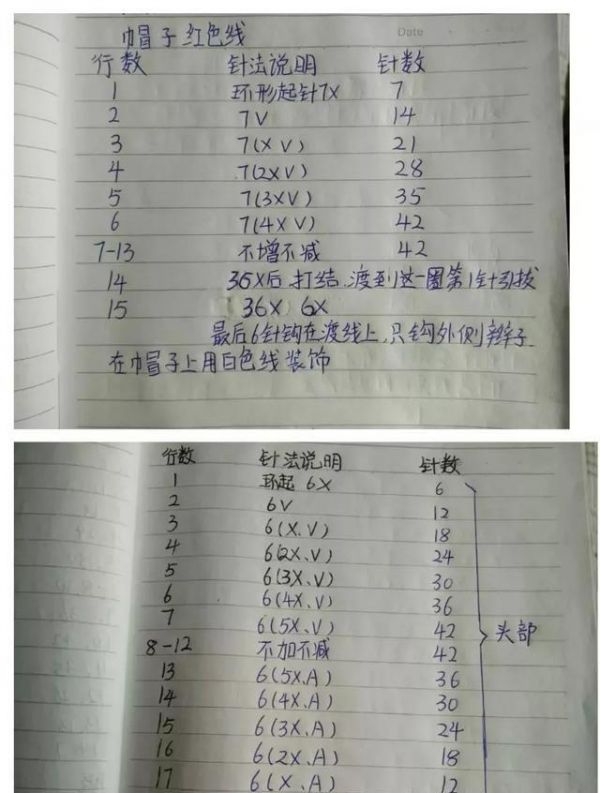 Date
帽子 红色线
行数 针法说明 针数
1 环形起针7X 7
2 7V 14
3 7(XV) 21
4 7(2XV) 28
5 7(3XV) 35
6 7(4XV) 42
7-13 不增不减 42
14 36X后,打结,渡到这一圈第1针引拔
15 36X 6X
最后6针钩在渡线上,只钩外侧辫子.
在帽子上用白色线装饰
行数 针法说明 针数
1 环起 6X 6
2 6V 12
3 6(X.V) 18
4 6(2X.V) 24
5 6(3X.V) 30
6 6(4X.V) 36
7 6(5X.V) 42
头部
8-12 不加不减 42
13 6(5X.A) 36
14 6(4X.A) 30
15 6(3X.A) 24
16 6(2X.A) 18
17 6(X.A) 12